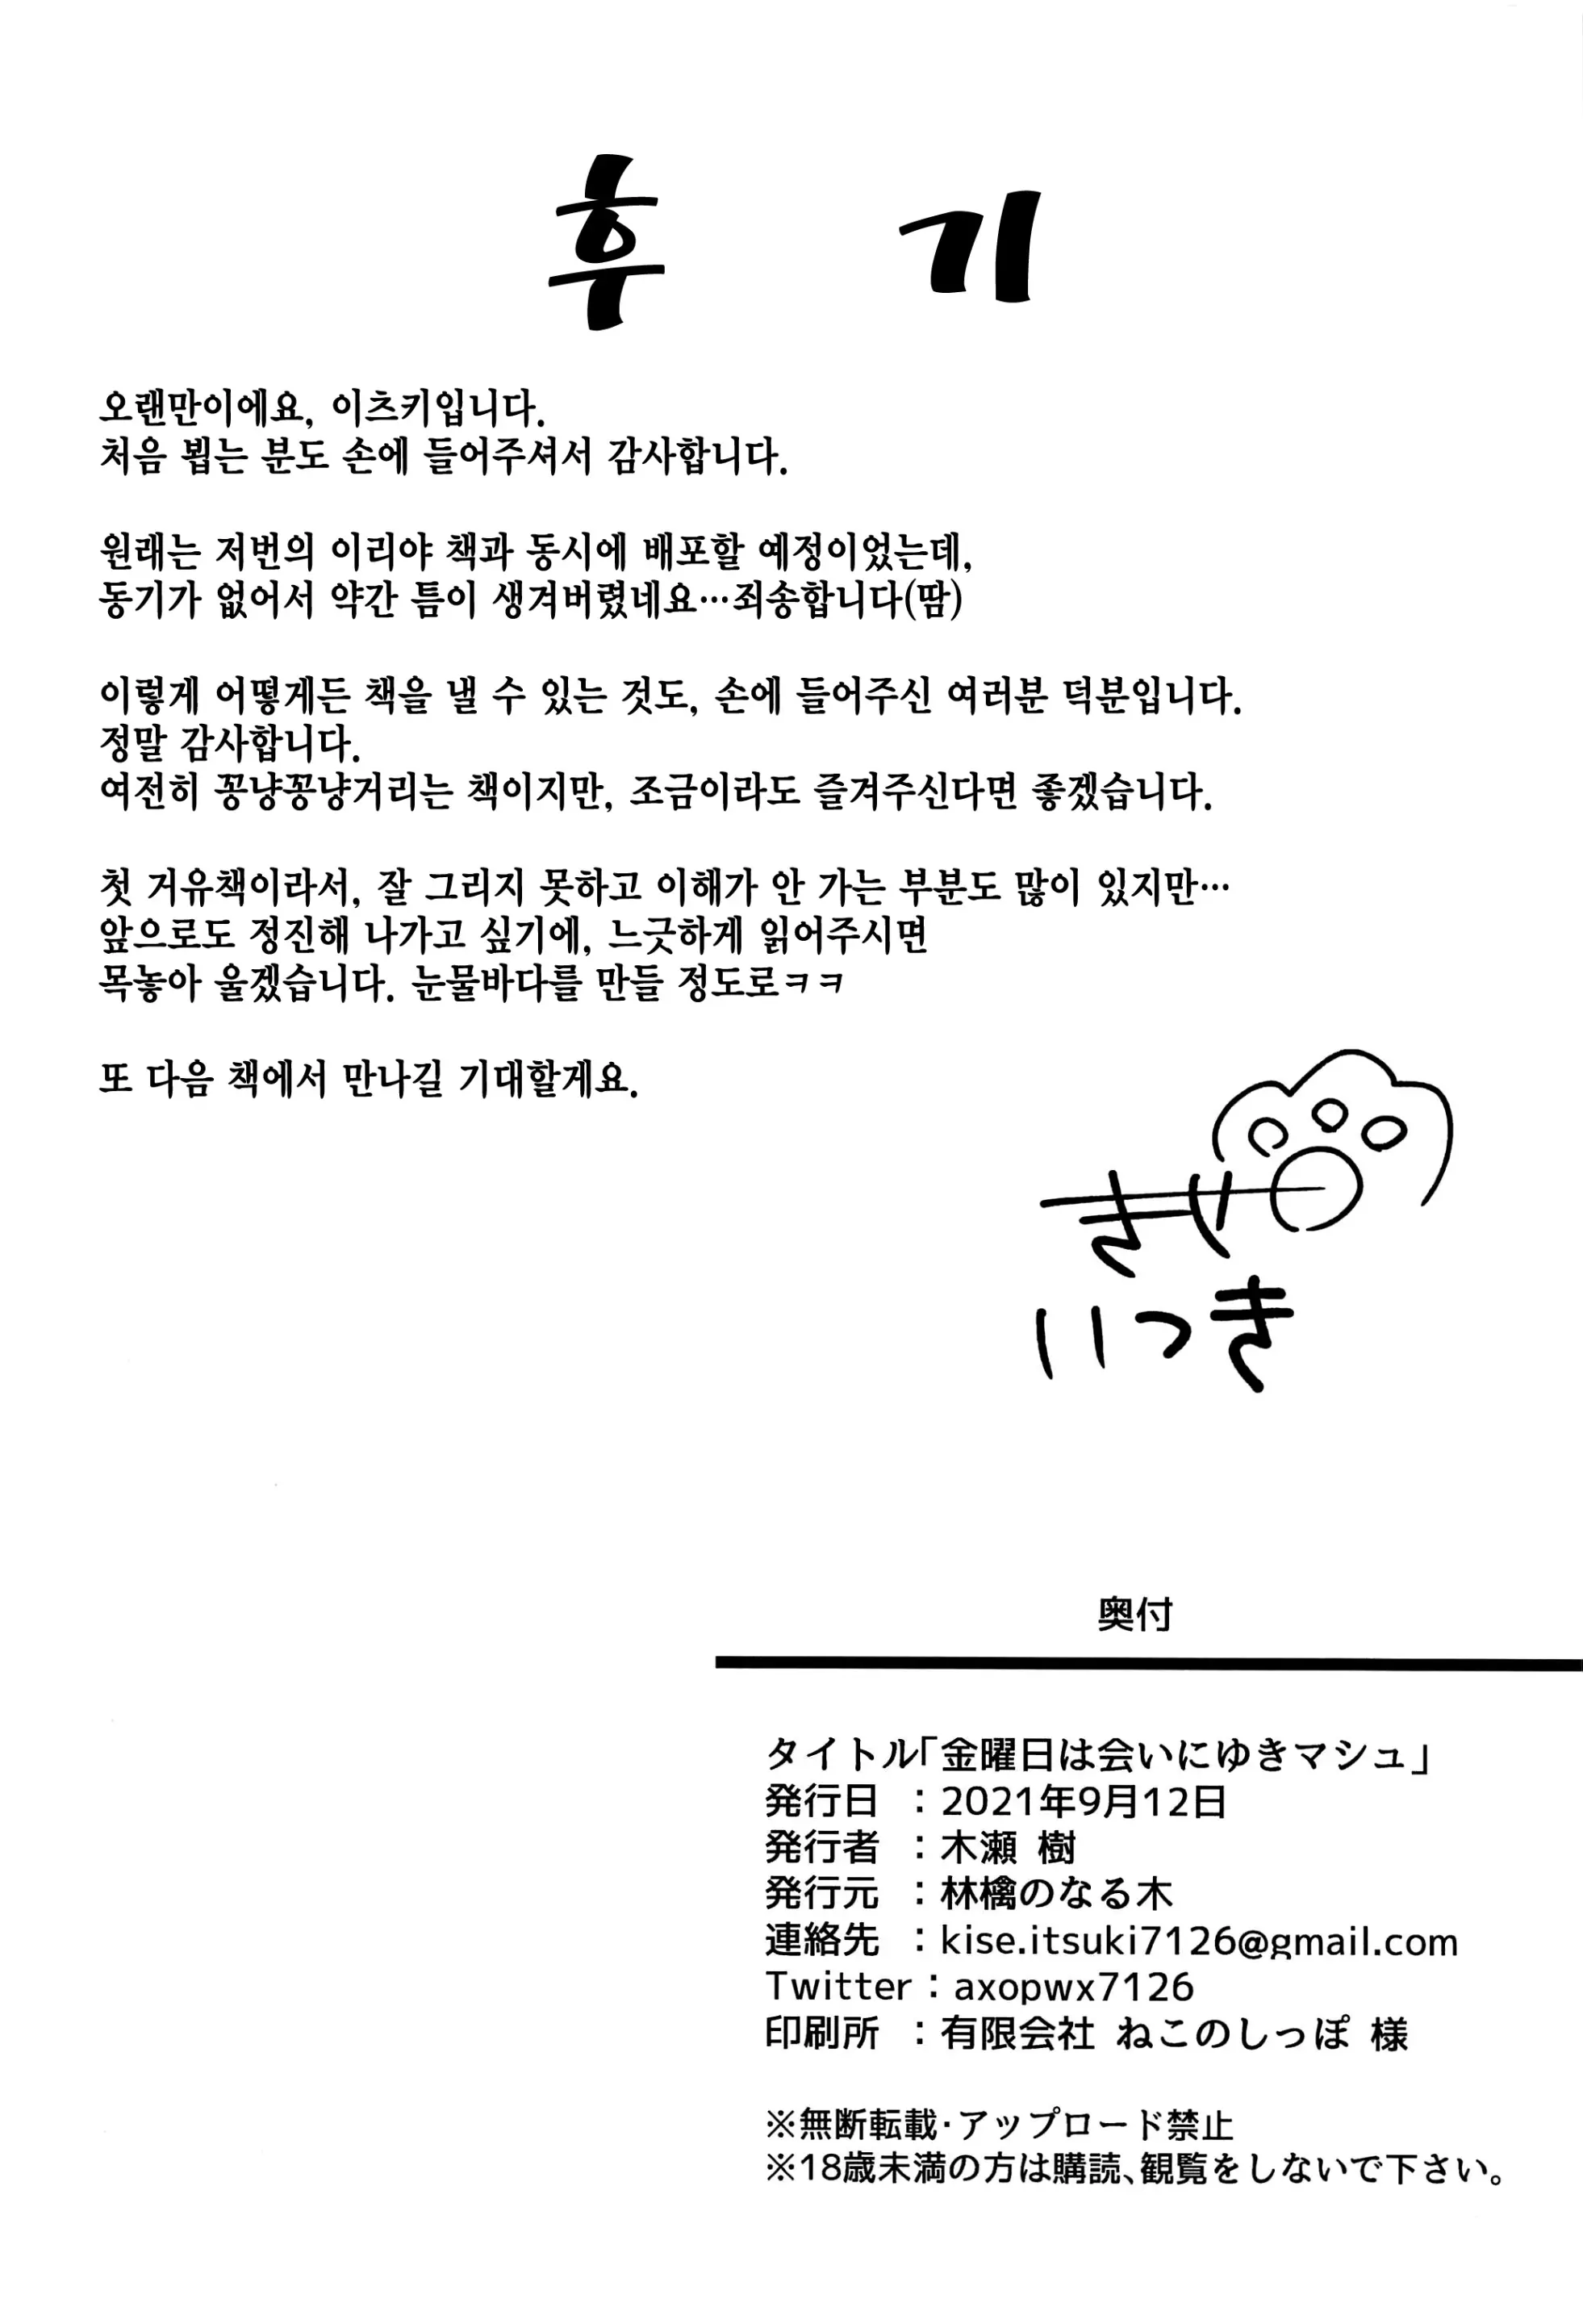 후 기
오랜만이에요, 이츠키입니다.
처음 뵙는 분도 손에 들어주셔서 감사합니다.
원래는 저번의 이리야 책과 동시에 배포할 예정이었는데,
동기가 없어서 약간 틈이 생겨버렸네요…죄송합니다(땀)
이렇게 어떻게든 책을 낼 수 있는 것도, 손에 들어주신 여러분 덕분입니다.
정말 감사합니다.
여전히 꽁냥꽁냥거리는 책이지만, 조금이라도 즐겨주신다면 좋겠습니다.
첫 거유책이라서, 잘 그리지 못하고 이해가 안 가는 부분도 많이 있지만…
앞으로도 정진해 나가고 싶기에, 느긋하게 읽어주시면
목놓아 울겠습니다. 눈물바다를 만들 정도로ㅋㅋ
또 다음 책에서 만나길 기대할게요.
いつき
奥付
タイトル「金曜日は会いにゆきマシュ」
発行日 ：2021年9月12日
発行者 ：木瀬 樹
発行元 ：林檎のなる木
連絡先 ：kise.itsuki7126@gmail.com
Twitter：axopwx7126
印刷所 ：有限会社 ねこのしっぽ 様
※無断転載･アップロード禁止
※18歳未満の方は購読､観覧をしないで下さい。